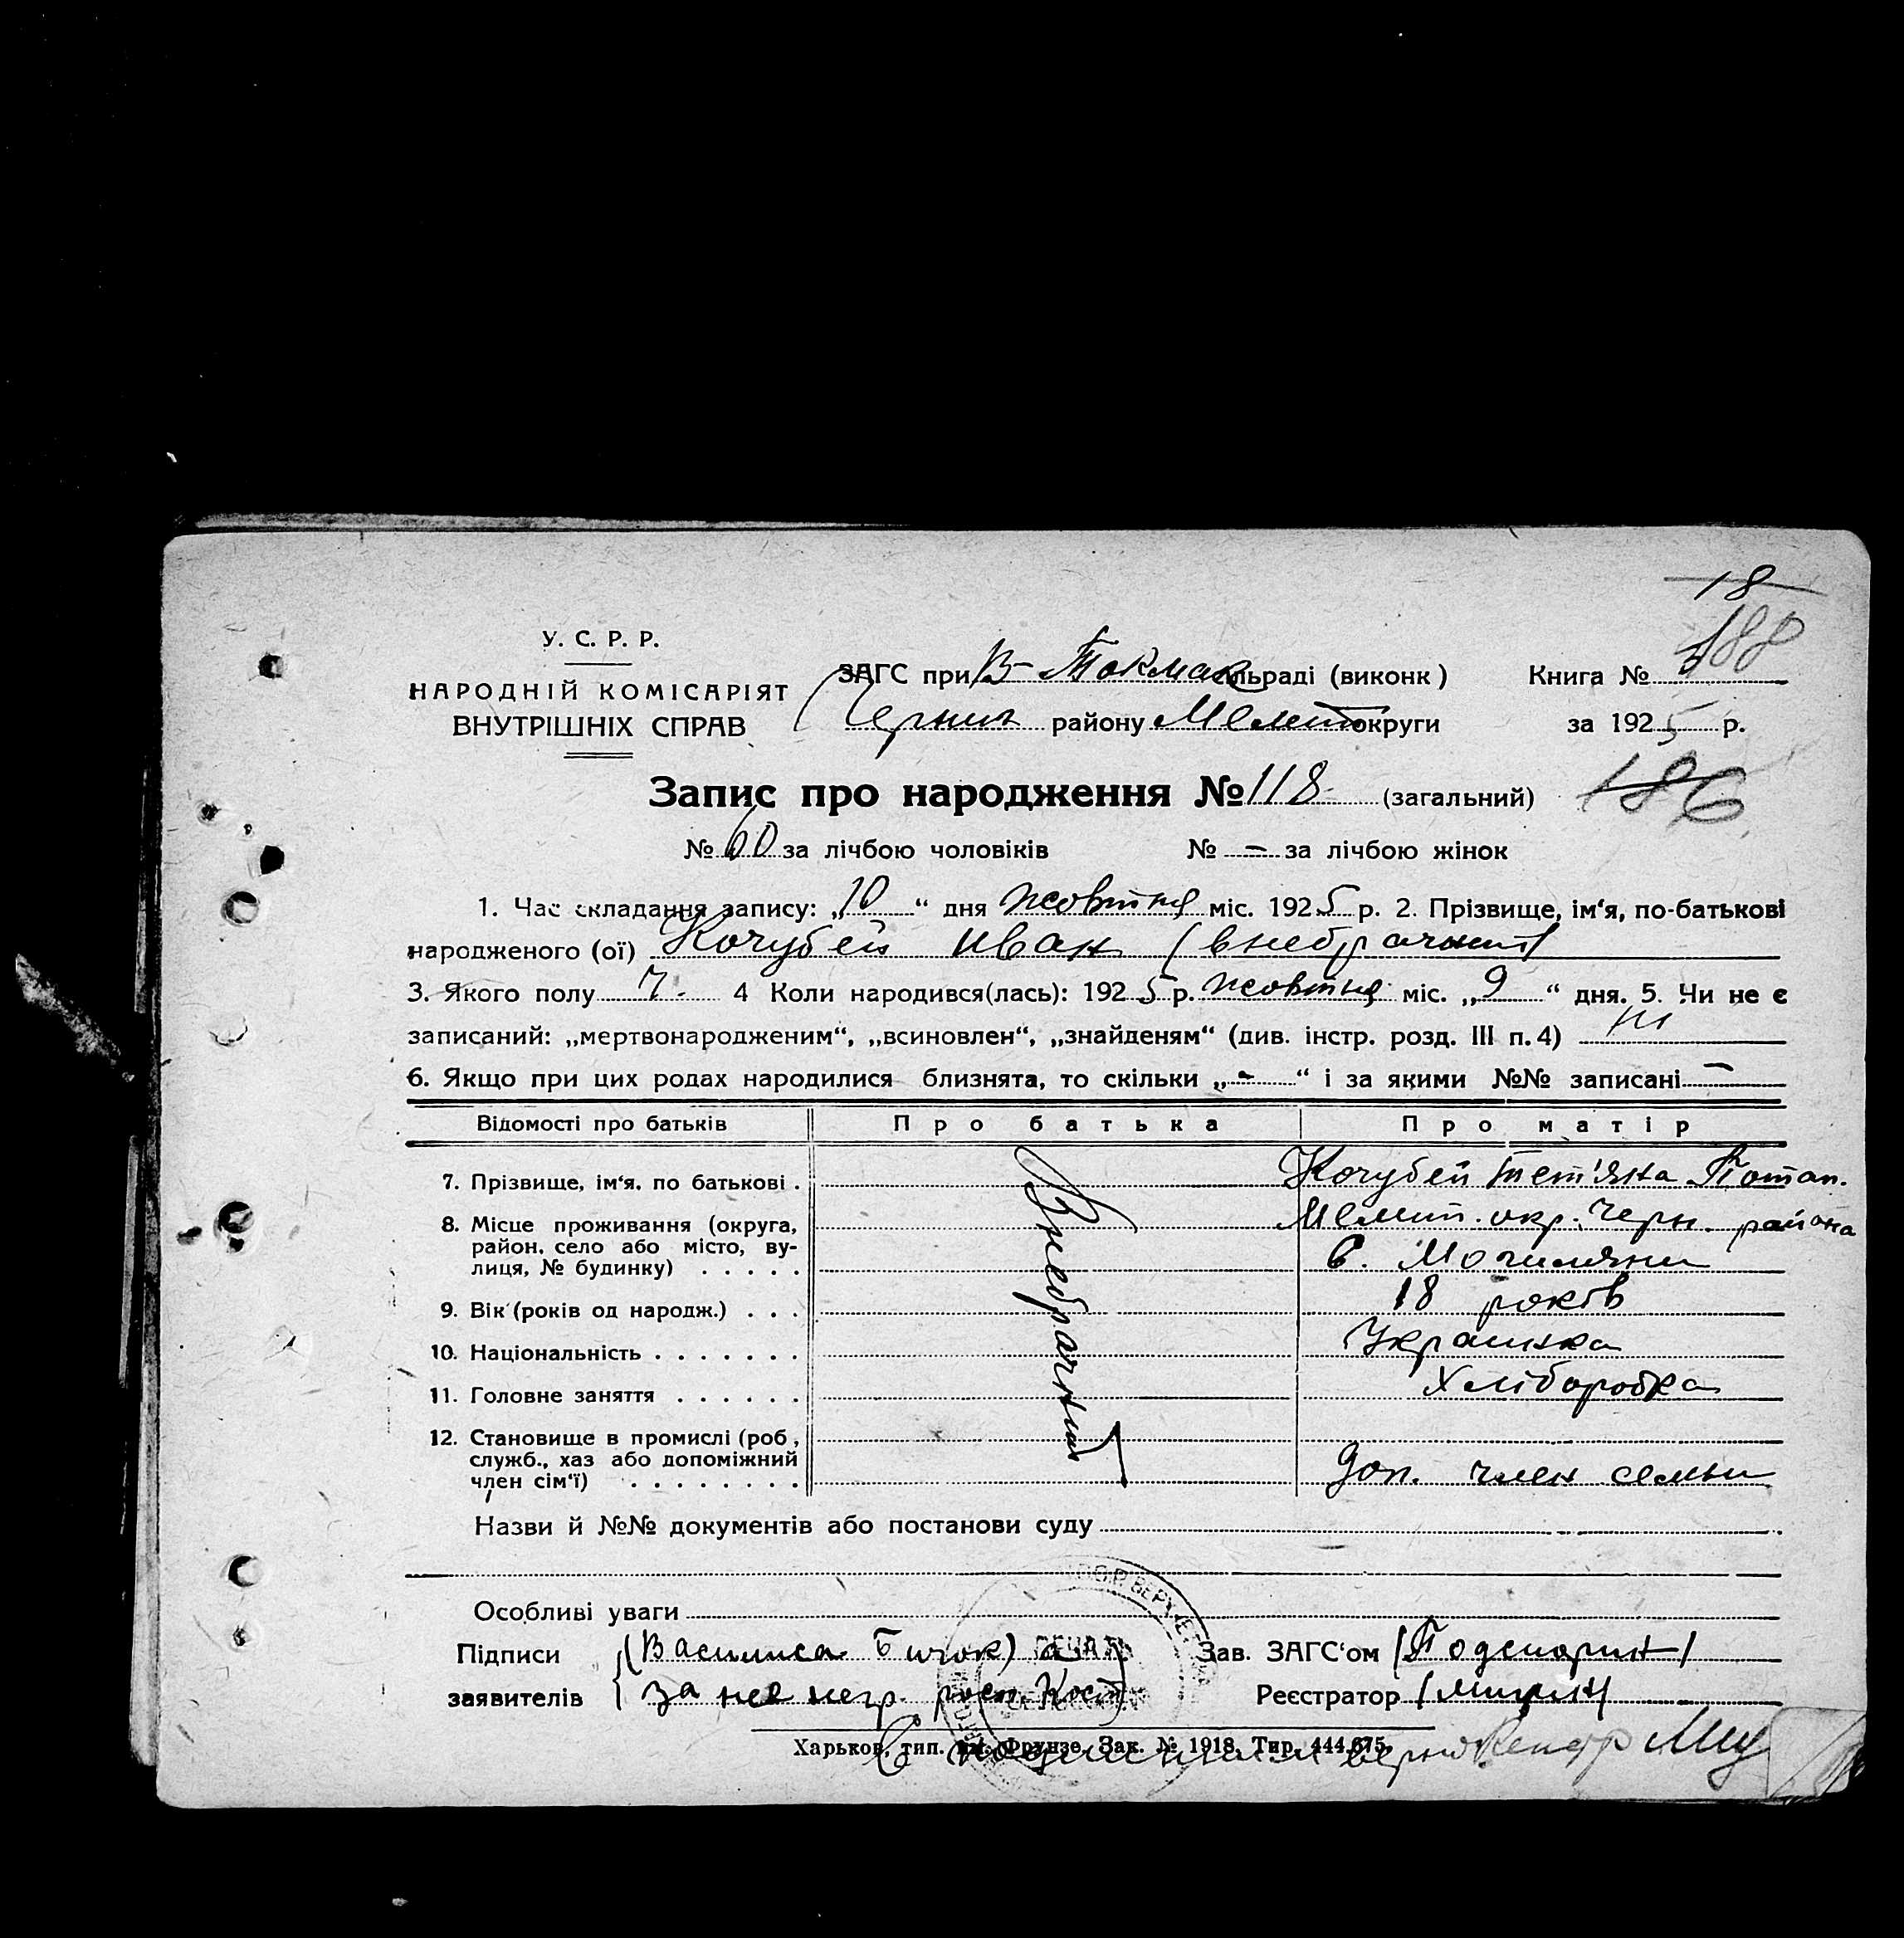 18
188
У. С. Р. Р.
НАРОДНІЙ КОМІСАРІЯТ
ВНУТРІШНІХ СПРАВ
ЗАГС при В-Токмак сільраді (виконк)
Черниг району Мелит округи
Книга №
за 1925 р.
Запис про народження № 118 (загальний)
186
№ 60 за лічбою чоловіків № - за лічбою жінок
1. Час складання запису: „10“ дня жовтня міс. 1925 р. 2. Прізвище, ім‘я, по-батькові
народженого (ої) Кочубей Иван (внебрачний)
3. Якого полу ч. 4 Коли народився(лась): 1925 р. жовтня міс. „9“ дня. 5. Чи не є
записаний: „мертвонародженим“, „всиновлен“, „знайденям“ (див. інстр. розд. III п. 4) ні
6. Якщо при цих родах народилися близнята, то скільки „-“ і за якими №№ записані -
Відомості про батьків Про батька Про матір
7. Прізвище, ім‘я, по батькові . Кочубей Тет'яна Потап.
8. Місце проживання (округа, Мелит. окр. Черн. района
район, село або місто, ву-
лиця, № будинку) . . . . . с. Могиляни
9. Вік (років од народж.) . . . 18 років
10. Національність . . . . . . . Украинка
11. Головне заняття . . . . . . Хліборобка
12. Становище в промислі (роб,
служб., хаз або допоміжний
член сім‘ї) . . . . . . . . доп. член семьи
Внебрачний
Назви й №№ документів або постанови суду
Особливі уваги
Підписи (Василиса Бичок) а Зав. ЗАГС‘ом
заявителів за нее негр. росп. Кост Реєстратор
Харьков, тип. ім. Фрунзе. Зак. № 1918. Тир. 444.675.
С верно